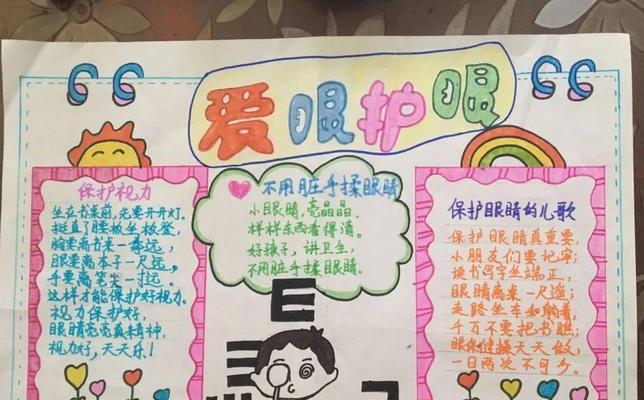 爱眼护眼
保护视力
坐在书桌前,先要开开灯。
挺直了腰板坐板凳,
胸要离书桌一拳远,
眼要离本子一尺远,
手要离笔尖一寸远。
这样才能保护好视力。
视力保护好,
眼睛亮亮真精神,
视力好,天天乐!
不用脏手揉眼睛
小眼睛,亮晶晶,
样样东西看得清。
好孩子,讲卫生,
不用脏手揉眼睛。
E
保护眼睛的儿歌
保护眼睛真重要,
小朋友们要记牢;
读书写字坐端正,
眼睛离桌一尺遥;
走路坐车和躺着,
千万不要把书瞧;
眼保健操天天做,
一日两次不可少。